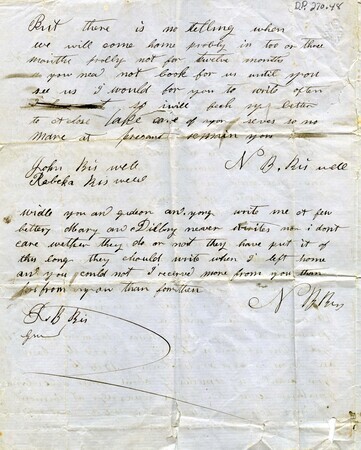 DR 270.48
But there is no telling when
we will come home probly in too or three
months probly not for twelve months
so you nead not look for us until you
see us I would for you to write often
my letter
to a close take care of your selves so no
more at preasant
John Kis well
N B. Kis well
Rebeka Kis well
an gideon an, yong write me a few
letters Mary an Dillby never writes me i dont
care wether they do or not they have put it of
this long they should write when I left home
an you could not I receive more from you than
for from you than from them
N B Kis
R B Kis